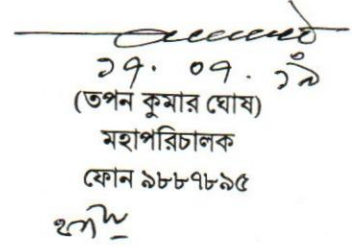 ১৭. ০৭. ১৯
(তপন কুমার ঘোষ)
মহাপরিচালক
ফোন ৯৮৮৭৮৯৫